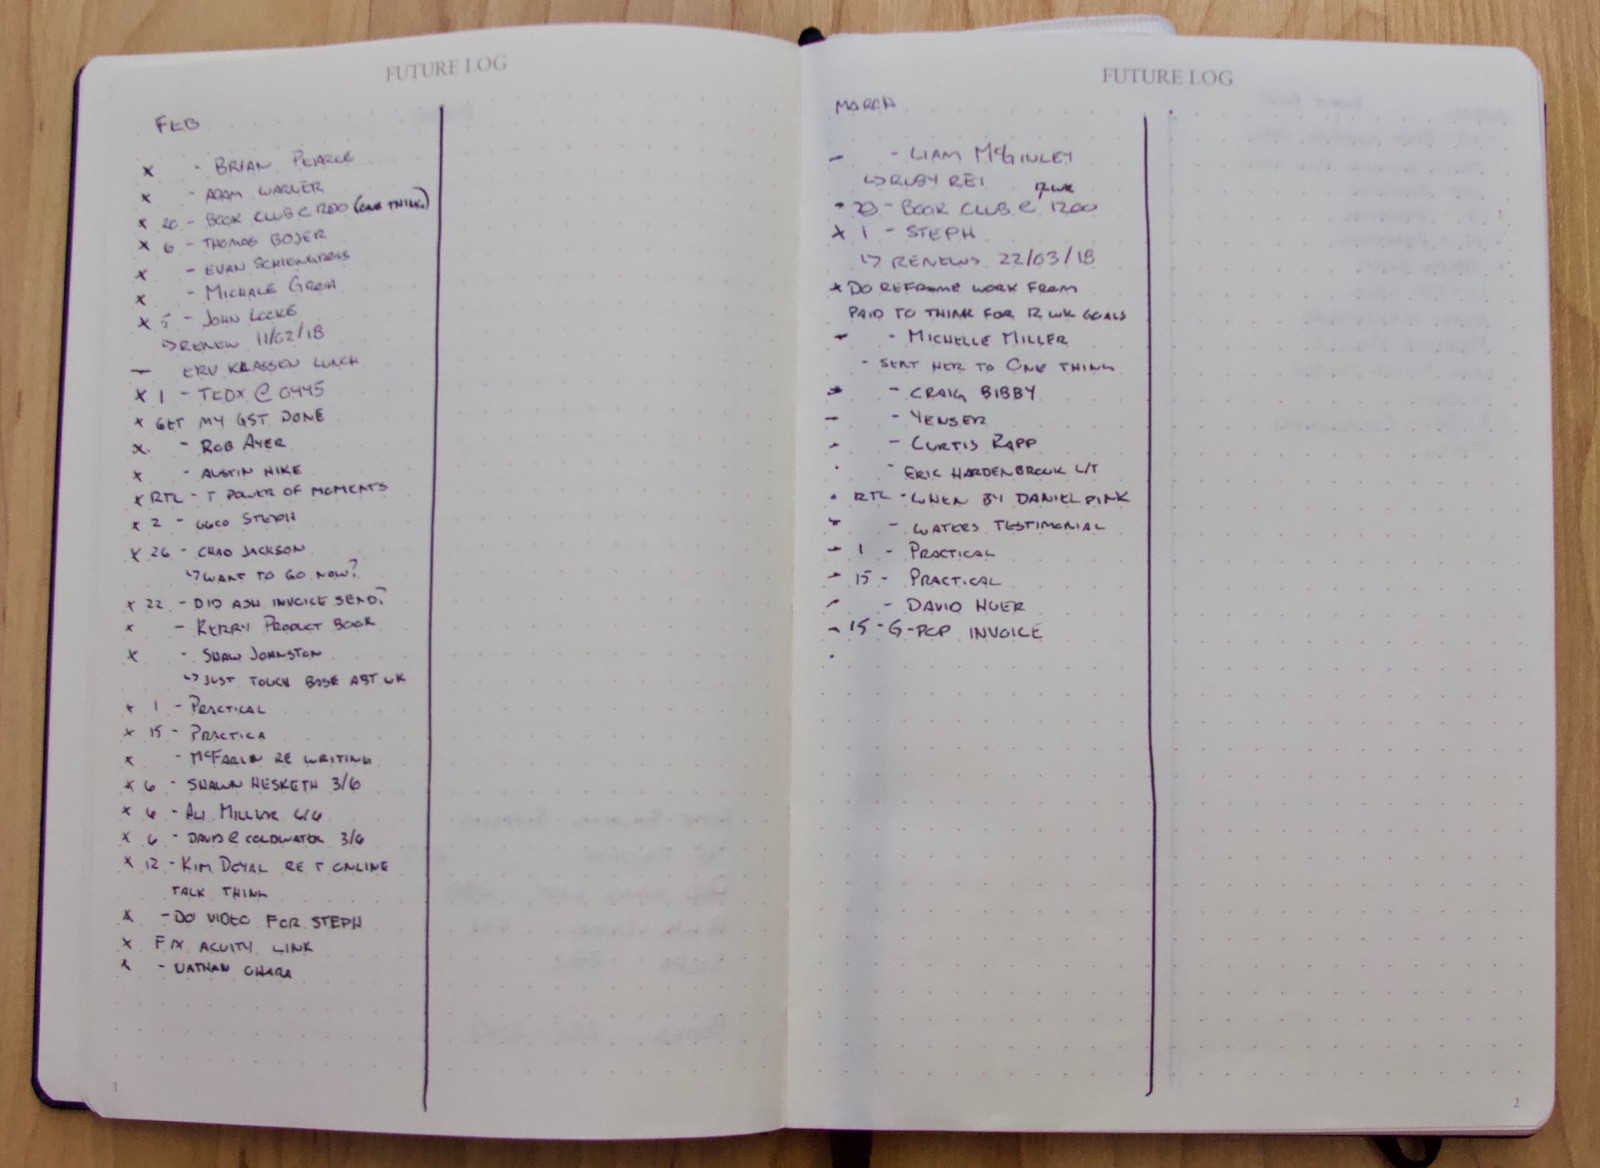 FUTURE LOG
FEB
x - BRIAN PEARCE
x - ADAM WARNER
x 20 - BOOK CLUB @ 1200 (ONE THING)
x 6 - THOMAS BOJER
x - EVAN
x - MICHALE GROH
x 5 - JOHN LOCKE
↳ RENEW 11/02/18
— ERV KLASSEN LUNCH
x 1 - TEDX @ 0445
x GET MY GST DONE
x - ROB AYER
x - AUSTIN HIKE
x RTL - T POWER OF MOMENTS
x 2 - STEPH
x 26 - CHAD JACKSON
↳ WANT TO GO NOW?
x 22 - DID ASH INVOICE SEND?
x - KERRY PRODUCT BOOK
x - SHAW JOHNSTON
↳ JUST TOUCH BASE ABT UK
x 1 - PRACTICAL
x 15 - PRACTICA
x - McFARLIN RE WRITING
x 6 - SHAWN HESKETH 3/6
x 6 - ALI MILLER 6/6
x 6 - DAVID @ COLDWATER 3/6
x 12 - KIM DOYAL RE T ONLINE
TALK THING
x - DO VIDEO FOR STEPH
x FIX ACUITY LINK
x - NATHAN OHARA
1
FUTURE LOG
MARCH
- - LIAM McGINLEY
↳ RUBY REI
12 WK
- 20 - BOOK CLUB @ 1200
x 1 - STEPH
↳ RENEWS 22/03/18
x DO REFRAME WORK FROM
PAID TO THINK FOR 12 WK GOALS
- - MICHELLE MILLER
- SENT HER TO ONE THING
- - CRAIG BIBBY
- - YENSER
- - CURTIS RAPP
· - ERIC HARDENBROOK L/T
• RTL - WHEN BY DANIEL PINK
- - WATERS TESTIMONIAL
- 1 - PRACTICAL
- 15 - PRACTICAL
- - DAVID HUER
- 15 - G-PCP INVOICE
·
2